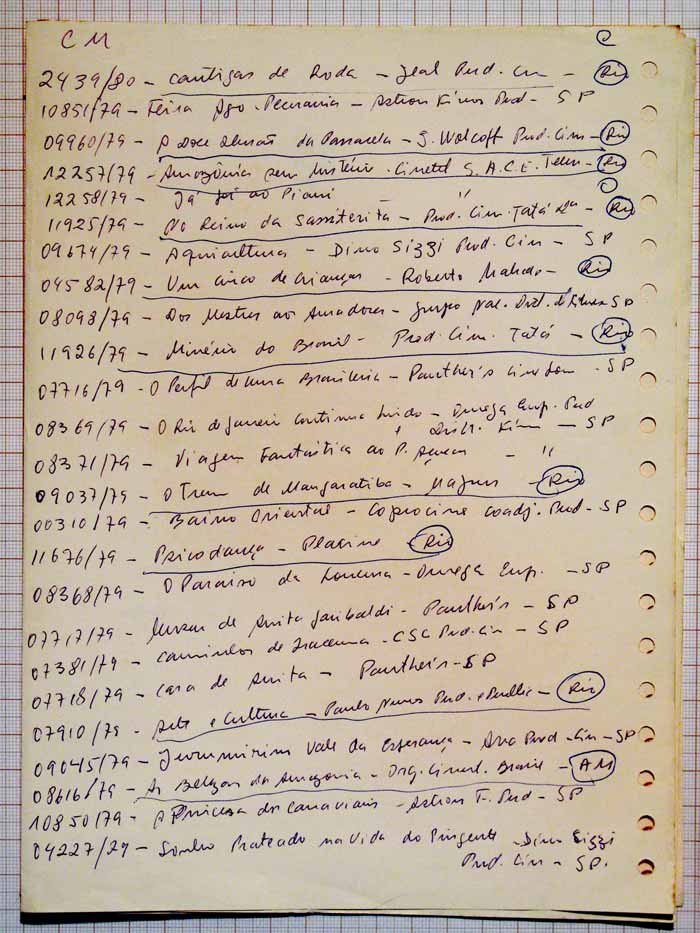 CM
2439/80 - Cantigas de Roda - Jeal Prod. Cin - Rio
10851/79 - Feira Agro-Pecuária - Astron Filmes Prod - SP
09960/79 - A Doce Ilusão da Passarela - J. Wolcoff Prod. Cin - Rio
12257/79 - Amazônia sem Mistério - Cinetel S.A.C.E. Telev - Rio
12258/79 - Já fui ao Piauí - "
11925/79 - No Reino da Cassiterita - Prod. Cin. Tatá Lda - Rio
09674/79 - Aquicultura - Dino Sizzi Prod. Cin - SP
04582/79 - Um circo de crianças - Roberto Machado - Rio
08098/79 - Dos Mestres aos Amadores - Grupo Nac. Dist. d'filmes SP
11926/79 - Minério do Brasil - Prod. Cin. Tatá - Rio
07716/79 - O Perfil de uma Brasileira - Panther's - SP
08369/79 - O Rio de Janeiro continua lindo - Omega Emp. Prod
e Distr. Film - SP
08371/79 - Viagem Fantástica ao P. - "
09037/79 - O Trem de Mangaratiba - Magnus - Rio
00310/79 - Bairro Oriental - Coprocine Coadj. Prod - SP
11676/79 - Psicodança - Placine Rio
08368/79 - O Paraíso da - Omega Emp. - SP
07717/79 - de Anita Garibaldi - Panther's - SP
07381/79 - Caminhos de Iracema - CSC Prod. Cin - SP
07718/79 - Casa de Anita - Panther's - SP
07910/79 - Arte e Cultura - Paulo Nunes Prod. e Public - Rio
09045/79 - Jurumirim Vale da Esperança - Ana Prod - Cin - SP
08616/79 - As Belezas da Amazonia - Org. Cinert. Brasil - AM
10850/79 - A Princesa dos Canaviais - Astron F. Prod - SP
04227/79 - Sonho Prateado na Vida do Pingente - Dino Sizzi
Prod. Cin - SP.